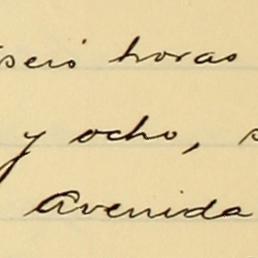 seis horas
y ocho, s
Avenida